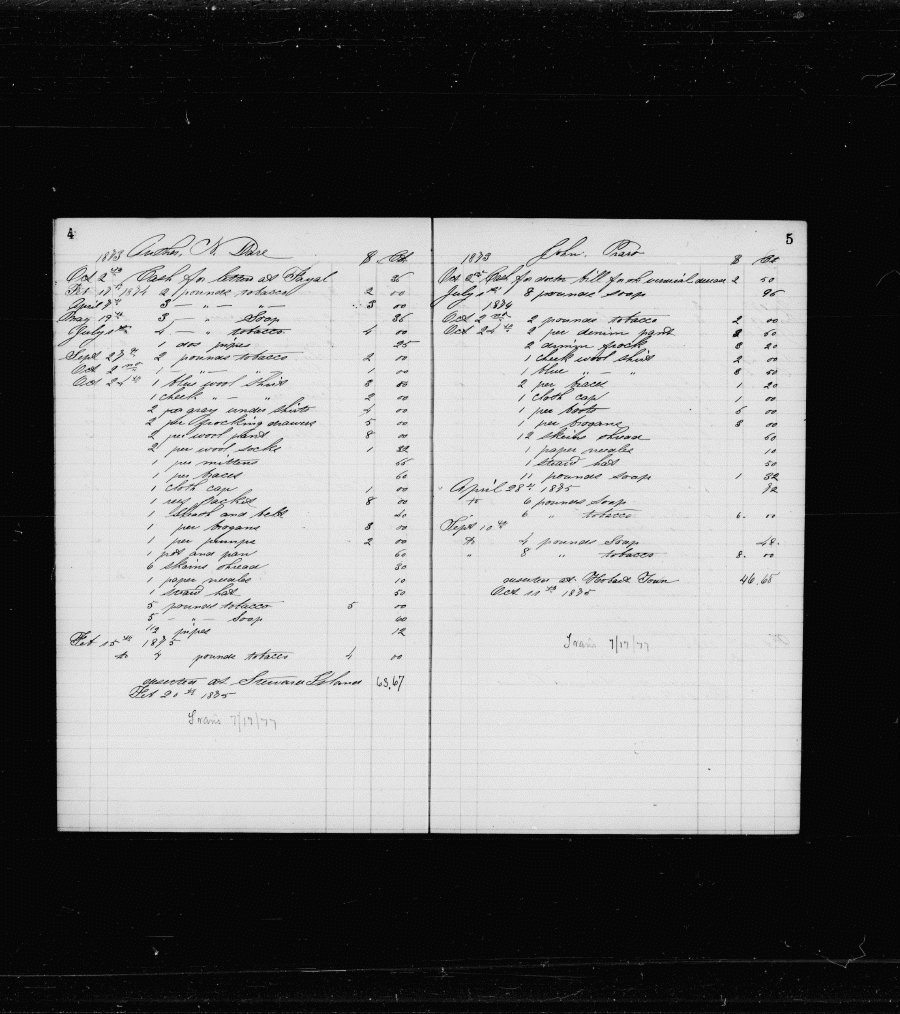 4
1873 Author N. Dare $ Ct
Oct 2nd Cash for letters at Fayal 36
Feb 17th 1874 2 pounds tobacco 2 00
April 7th 3 — " — " — 3 00
May 19th 3 — " Soap 36
July 1st 4 — " tobacco 4 00
1 dos pipes 25
Sept 27th 2 pounds tobacco 2 00
Oct 2nd 1 — " — " — " 1 00
Oct 24th 1 blue wool shirt 3
1 check " — " 2 00
2 par gray under shirts 4 00
2 per drawers 5 00
2 per wool pant 8 00
2 per wool socks 1 32
1 per mittens 66
1 per braces 60
1 cloth cap 1 00
1 jacket 8 00
1 and belt 40
1 per brogans 3 00
1 per pumps 2 00
1 pot and pan 60
6 skains thread 30
1 paper needles 10
1 straw hat 50
5 pounds tobacco 5 00
5 — " — Soap 60
1/2 pipes 12
Feb 15th 1875
to 4 pounds tobacco 4 00
deserten at Steward Island 63,67
Feb 20th 1875
Trans 7/17/77
5
1873 John $ Ct
Oct 2nd Cash for doctor bill for venerial desease 2 50
July 1st 8 pounds soap 96
1874
Oct 2nd 2 pounds tobacco 2 00
Oct 24th 2 per denim pant 60
2 denim frock 3 20
1 check wool shirt 2 00
1 blue " — " 3 50
2 per braces 1 20
1 cloth cap 1 00
1 per boots 5 00
1 per brogans 3 00
12 skains thread 60
1 paper needles 10
1 straw hat 50
11 pounds soap 1 32
April 28th 1875 72
to 6 pounds soap
" 6 " tobacco 6. 00
Sept 10th
to 4 pounds Soap 48.
" 8 " tobacco 8. 00
deserten at Hobart Town 46,68
Oct 11th 1875
Trans 7/17/77